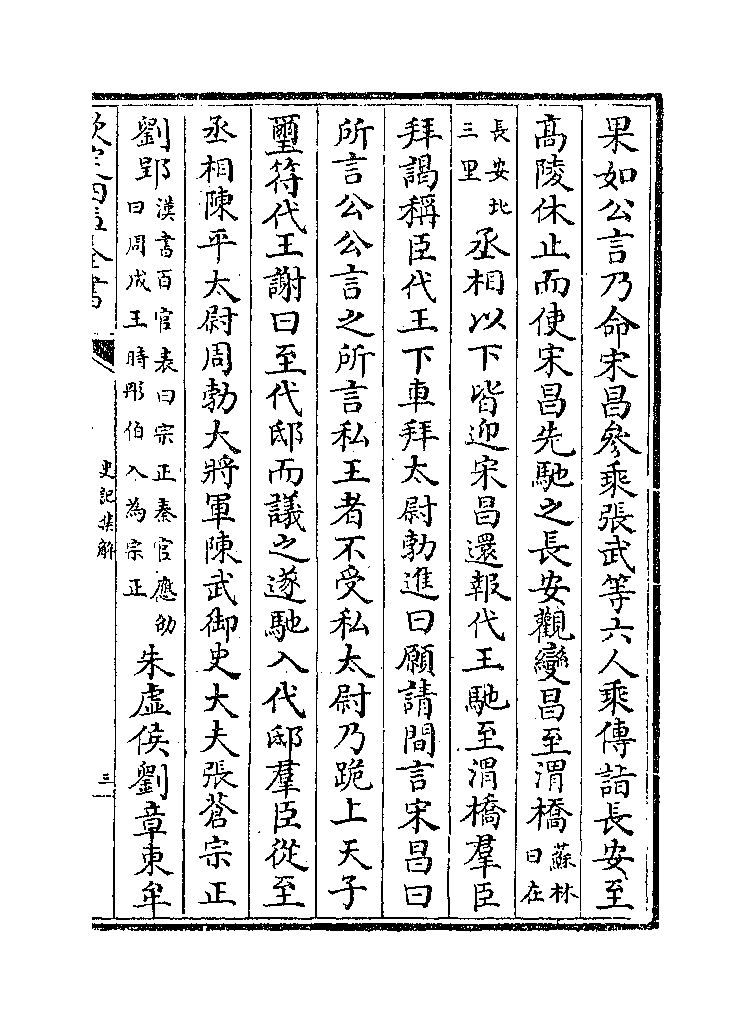 果如公言乃命宋昌參乘張武等六人乘傳詣長安至
髙陵休止而使宋昌先馳之長安觀變昌至渭橋蘇林曰在
長安北三里丞相以下皆迎宋昌還報代王馳至渭橋羣臣
拜謁稱臣代王下車拜太尉勃進曰願請間言宋昌曰
所言公公言之所言私王者不受私太尉乃跪上天子
璽符代王謝曰至代邸而議之遂馳入代邸羣臣從至
丞相陳平太尉周勃大將軍陳武御史大夫張蒼宗正
劉郢漢書百官表曰宗正秦官應劭曰周成王時彤伯入為宗正朱虛侯劉章東牟
欽定四庫全書
史記集解
三